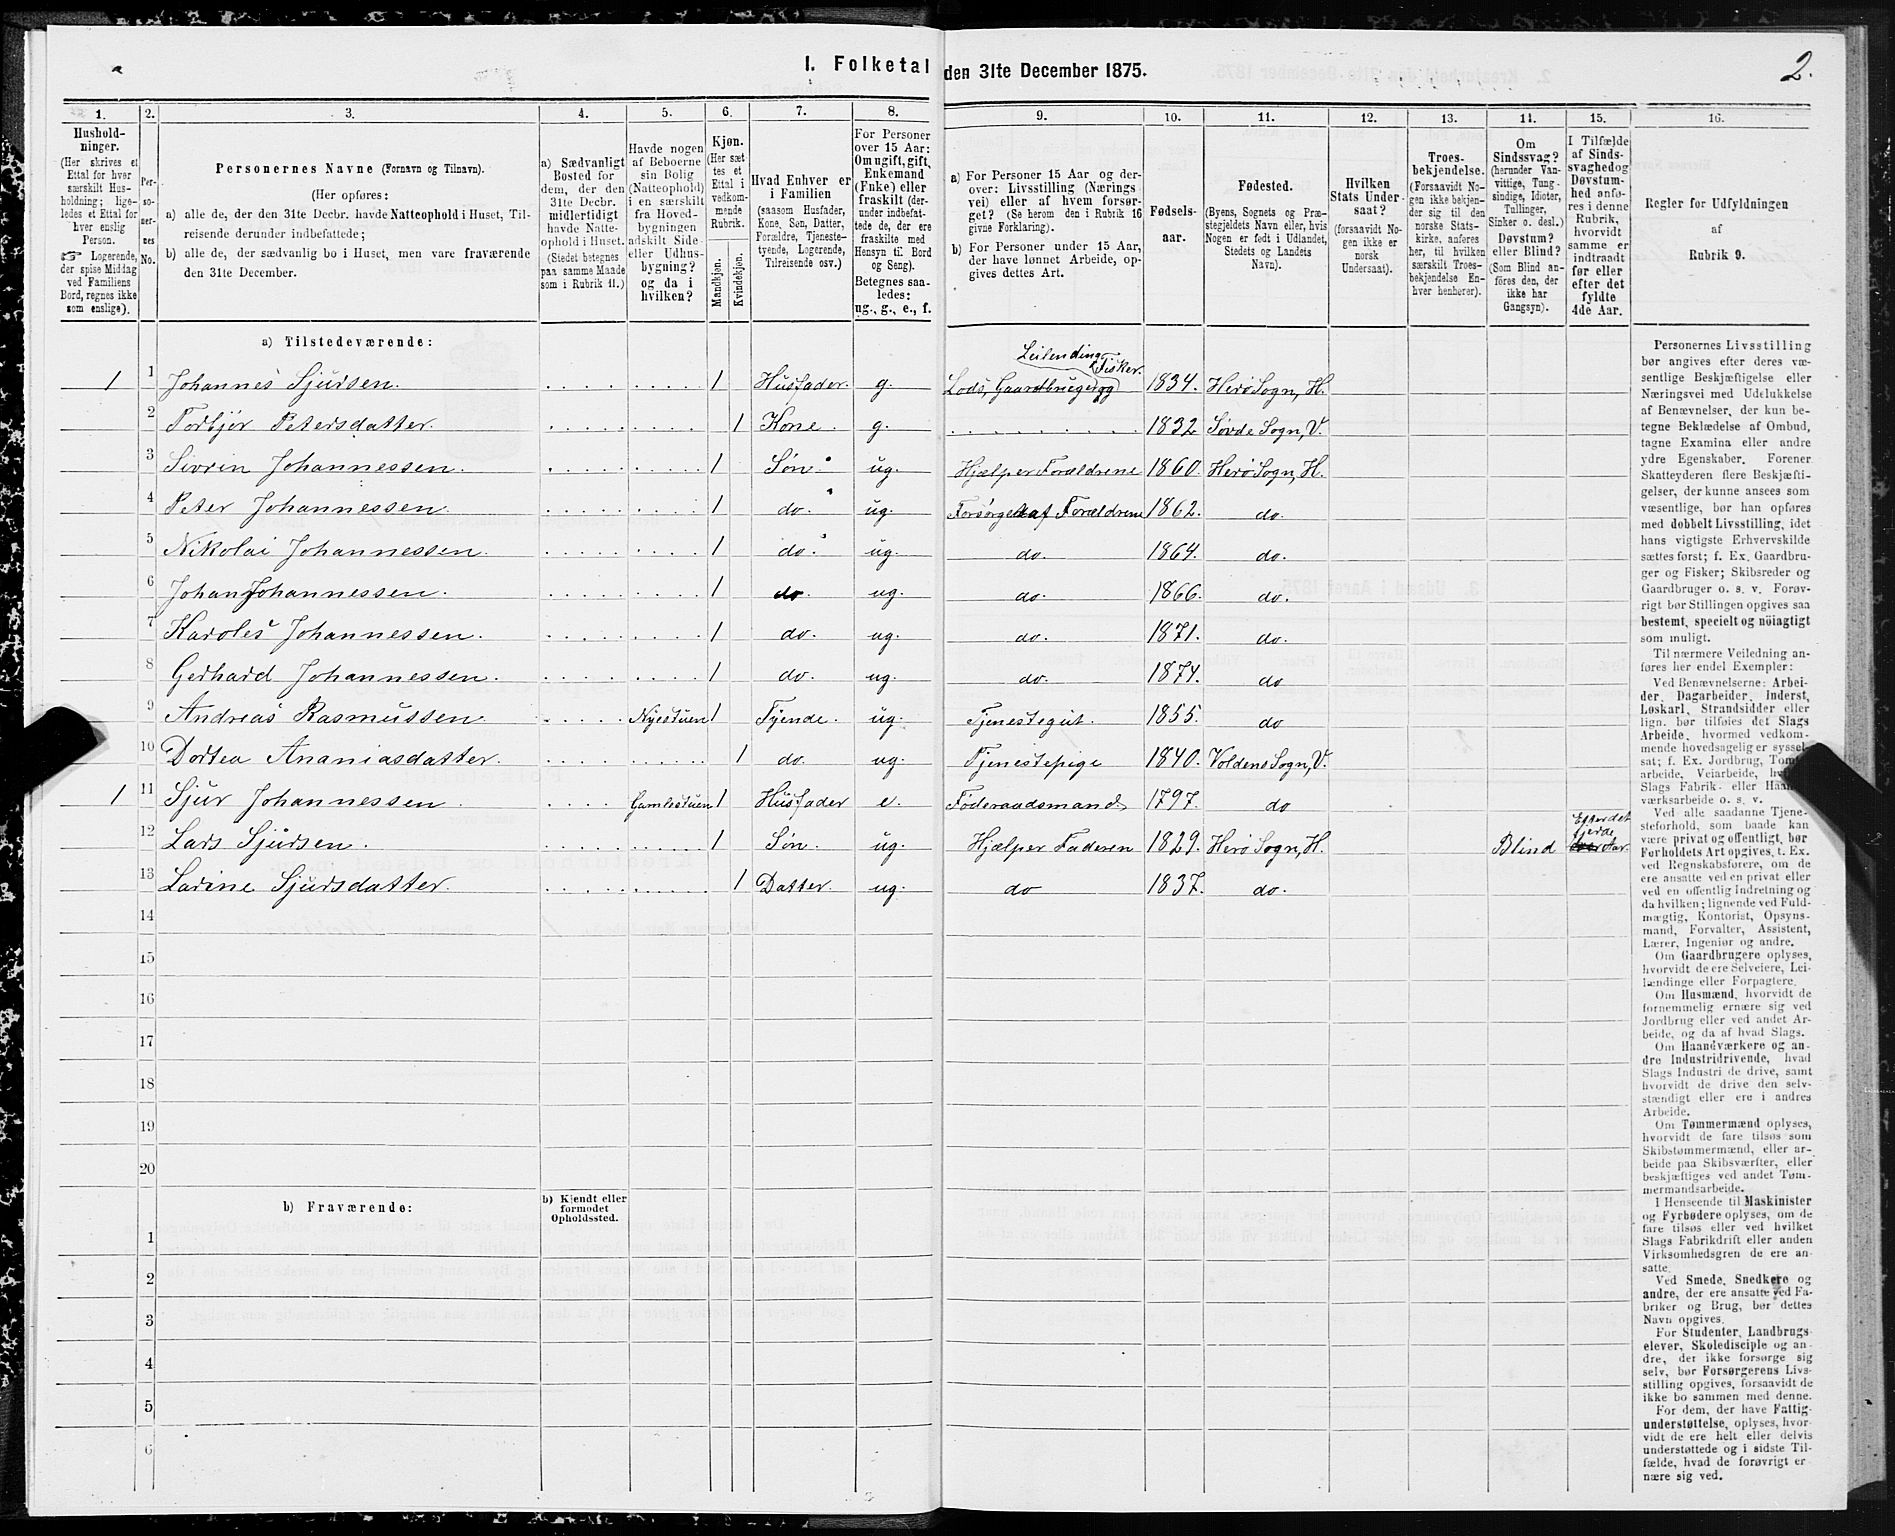 I. Folketal den 31te December 1875.
2.
1. 2. 3. 4. 5. 6. 7. 8. 9. 10. 11. 12. 13. 11. 15. 16.
Hushold-
ninger.
(Her skrives et
Ettal for hver
særskilt Hus-
holdning; lige-
ledes et Ettal for
hver enslig
Person.
☞ Logerende,
der spise Middag
ved Familiens
Bord, regnes ikke
som enslige).
Per-
so-
ner-
nes
No.
Personernes Navne (Fornavn og Tilnavn).
(Her opføres:
a) alle de, der den 31te Decbr. havde Natteophold i Huset, Til-
reisende derunder indbefattede;
b) alle de, der sædvanlig bo i Huset, men vare fraværende
den 31te December.
a) Sædvanligt
Bosted for
dem, der den
31te Decbr.
midlertidigt
havde Natte-
ophold i Huset.
(Stedet betegnes
paa samme Maade
som i Rubrik 11.)
Havde nogen
af Beboerne
sin Bolig
(Natteophold)
i en særskilt
fra Hoved-
bygningen
adskilt Side-
eller Udhus-
bygning?
og da i
hvilken?
Kjøn.
(Her sæt
tes et
Ettal i
vedkom-
mende
Rubrik.
Mandkjøn.
Kvindekjøn.
Hvad Enhver er
i Familien
(saasom Husfader,
Kone, Søn, Datter,
Forældre, Tjeneste-
tyende, Logerende,
Tilreisende osv.)
For Personer
over 15 Aar:
Om ugift, gift,
Enkemand
(Enke) eller
fraskilt (der-
under indbefat-
tede de, der ere
fraskilte med
Hensyn til Bord
og Seng).
Betegnes saa-
ledes:
ug., g., e., f.
a) For Personer 15 Aar og der-
over: Livsstilling (Nærings
vei) eller af hvem forsør-
get? (Se herom den i Rubrik 16
givne Forklaring).
b) For Personer under 15 Aar,
der have lønnet Arbeide, op-
gives dettes Art.
Fødsels-
aar.
Fødested.
(Byens, Sognets og Præ-
stegjeldets Navn eller, hvis
Nogen er født i Udlandet,
Stedets og Landets
Navn).
Hvilken
Stats Under-
saat?
(forsaavidt No-
gen ikke er
norsk
Undersaat).
Troes-
bekjendelse.
(Forsaavidt No-
gen ikke bekjen-
der sig til den
norske Stats-
kirke, anføres
her, til hvilken
særskilt Troes-
bekjendelse En-
hver henhører).
Om
Sindssvag?
(herunder Van-
vittige, Tung-
sindige, Idioter,
Tullinger,
Sinker o. desl.)
Døvstum?
eller Blind?
(Som Blind an-
føres den, der
ikke har
Gangsyn).
I Tilfælde
af Sinds-
svaghedog
Døvstum-
hed anfø-
res i denne
Rubrik,
hvorvidt
samme er
indtraadt
før eller
efter det
fyldte
4de Aar.
Regler for Udfyldningen
af
Rubrik 9.
a) Tilstedeværende:
Leilending
1 1 Johannes Sjursen. 1 Husfader. g. Lods, Gaardbruger og Fisker. 1834. Herø Sogn, H.
2 Torbjør Petersdatter. 1 Kone. g. 1832 Søvde Sogn, V.
3 Sivrin Johannessen. 1 Søn. ug. Hjælper Forældrene 1860. Herø Sogn, H.
4 Peter Johannessen. 1 do. ug. Forsørges af Forældrene 1862. do.
5 Nikolai Johannessen. 1 do. ug. do. 1864. do.
6 Johan Johannessen. 1 do. ug. do. 1866. do.
7 Karoles Johannessen. 1 do. ug. do. 1871. do.
8 Gerhard Johannessen. 1 do. ug. do. 1874. do
9 Andreas Rasmussen. Nyestuen 1 Tyende. ug. Tjenestegut. 1855. do
10 Dortea Ananiasdatter. 1 do. ug. Tjenestepige 1840. Voldens Sogn, V.
1 11 Sjur Johannessen. Gamlestuen 1 Husfader e. Føderaadsmand 1797. do
12 Lars Sjursen. 1 Søn. ug. Hjælper Faderen 1829. Herø Sogn, H. Blind Efter det fjerde Aar.
13 Larine Sjursdatter. 1 Datter. ug. do 1837. do.
14
15
16
17
18
19
20
b) Fraværende:
b) Kjendt eller
formodet
Opholdssted.
1
2
3
4
5
6
Personernes Livsstilling
bør angives efter deres væ-
sentlige Beskjæftigelse eller
Næringsvei med Udelukkelse
af Benævnelser, der kun be-
tegne Beklædelse af Ombud,
tagne Examina eller andre
ydre Egenskaber. Forener
Skatteyderen flere Beskjæfti-
gelser, der kunne ansees som
væsentlige, bør han opføres
med dobbelt Livsstilling, idet
hans vigtigste Erhvervskilde
sættes først; f. Ex. Gaardbru-
ger og Fisker; Skibsreder og
Gaardbruger o. s. v. Forøv-
rigt bør Stillingen opgives saa
bestemt, specielt og nöiagtigt
som muligt.
Til nærmere Veiledning an-
føres her endel Exempler:
Ved Benævnelserne: Arbei-
der, Dagarbeider, Inderst,
Løskarl, Strandsidder eller
lign. bør tilføies det Slags
Arbeide, hvormed vedkom-
mende hovedsagelig er syssel-
sat; f. Ex. Jordbrug, Tomt-
arbeide, Veiarbeide,
Slags Fabrik- eller Haand-
værksarbeide o. s. v.
Ved alle saadanne Tjene-
steforhold, som baade kan
være privat og offentligt, bør
Forholdets Art opgives, t. Ex.
ved Regnskabsførere, om de
ere ansatte ved en privat eller
ved en offentlig Indretning og
da hvilken; lignende ved Fuld-
mægtig, Kontorist, Opsyns-
mand, Forvalter, Assistent,
Lærer, Ingeniør og andre.
Om Gaardbrugere oplyses,
hvorvidt de ere Selveiere, Lei-
lændinge eller Forpagtere.
Om Husmænd, hvorvidt de
fornemmelig ernære sig ved
Jordbrug eller ved andet Ar-
beide, og da af hvad Slags.
Om Haandværkere og an-
dre Industridrivende, hvad
Slags Industri de drive, samt
hvorvidt de drive den selv-
stændigt eller ere i andres
Arbeide.
Om Tømmermænd oplyses,
hvorvidt de fare tilsøs som
Skibstømmermænd, eller ar-
beide paa Skibsværfter, eller
beskjæftiges ved andet Tøm-
mermandsarbeide.
I Henseende til Maskinister
og Fyrbødere oplyses, om de
fare tilsøs eller ved hvilket
Slags Fabrikdrift eller anden
Virksomhedsgren de ere an-
satte.
Ved Smede, Snedkere og
andre, der ere ansatte ved Fa-
briker og Brug, bør dettes
Navn opgives.
For Studenter, Landbrugs-
elever, Skoledisciple og an-
dre, der ikke forsørge sig
selv, bør Forsørgerens Livs-
stilling opgives, forsaavidt de
ikke bo sammen med denne.
For dem, der have Fattig-
understøttelse, oplyses, hvor-
vidt de ere helt eller delvis
understøttede og i sidste Til-
fælde, hvad de forøvrigt er
nære sig ved.